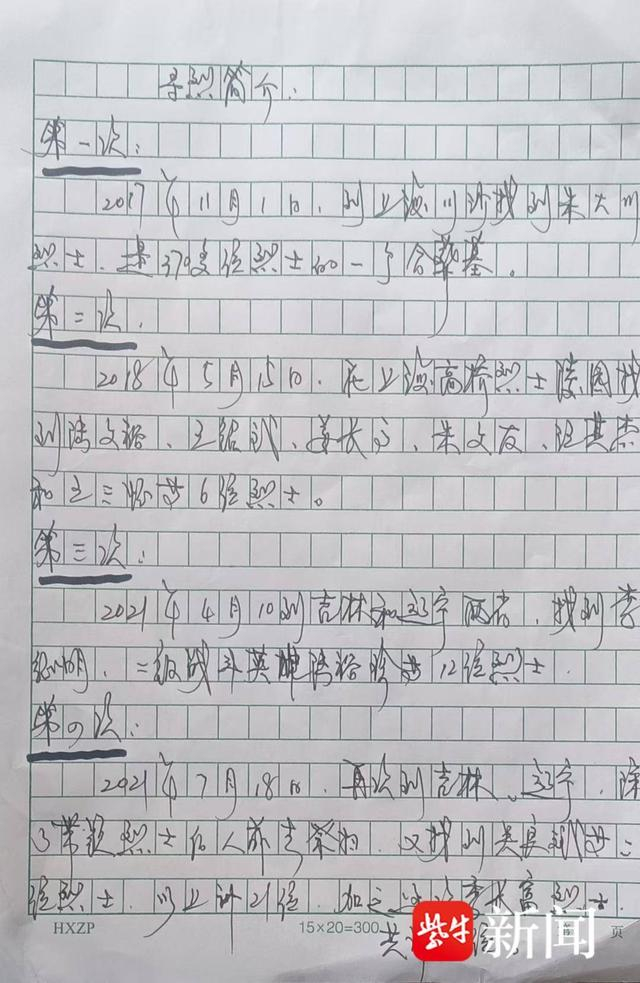 寻烈简介：
第一次：
2017年11月1日，到上海川沙找到朱大
烈士，是379多位烈士的一个合葬墓。
第二次，
2018年5月15日，在上海高桥烈士陵园找
到陆文裕、王绍武、姜长、朱文友、汪其
和王三等6位烈士。
第三次：
2021年4月10到吉林和辽宁两省，找到李
明，二级战斗英雄陆裕等12位烈士.
第四次：
2021年7月18日，再次到吉林、辽宁，除
了带领烈士的人前去祭扫，又找到吴良等二
位烈士，以上计21位，加上这次李长富烈士，
共位
HXZP
15×20=300
页
紫牛新闻